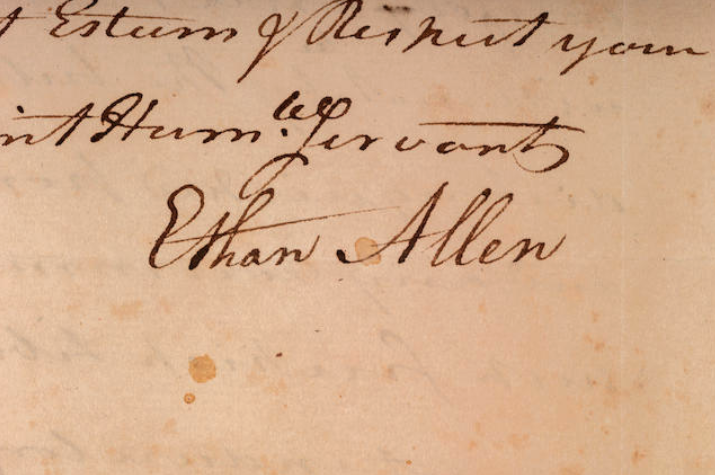 t Esteem & Respect your
nt Humble Servant
Ethan Allen